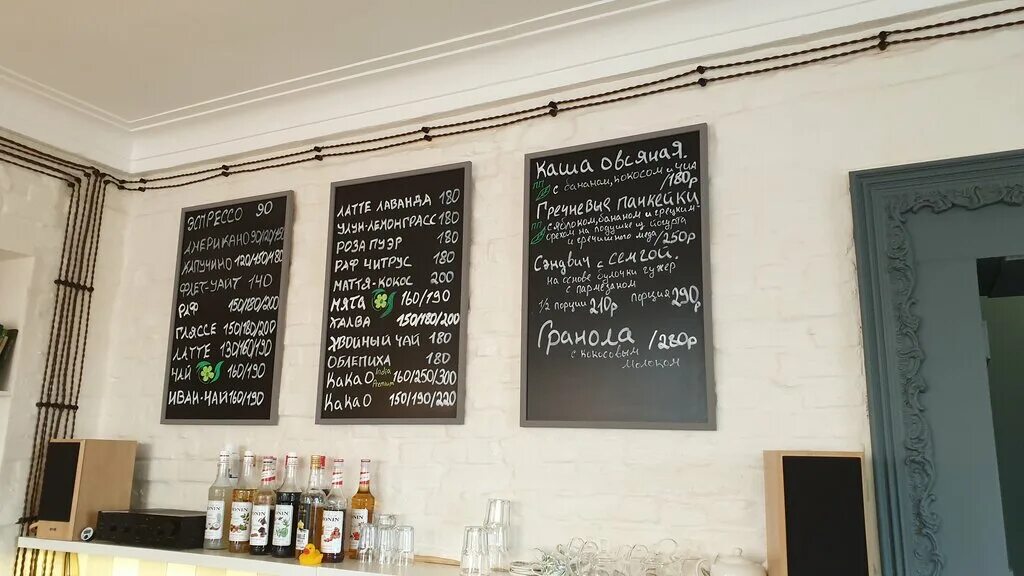 ЭСПРЕССО 90
АМЕРИКАНО 90/120/150
КАПУЧИНО 120/150/180
ФЛЕТ-УАЙТ 140
РАФ 150/180/200
ГЛЯССЕ 150/180/200
ЛАТТЕ 130/160/190
ЧАЙ 160/190
ИВАН-ЧАЙ 160/190
ЛАТТЕ ЛАВАНДА 180
УЛУН-ЛЕМОНГРАСС 180
РОЗА ПУЭР 180
РАФ ЦИТРУС 180
МАТТЯ-КОКОС 200
МЯТА 160/190
ХАЛВА 150/180/200
ХВОЙНЫЙ ЧАЙ 180
ОБЛЕПИХА 180
КАКАО India 160/250/300
КАКАО 150/190/220
Каша овсяная.
ПП с бананом, кокосом и чиа
/180р
Гречневые панкейки
ПП с яблоком, бананом и грецким
орехом на подушке из йогурта
и гречишного меда /250р
Сэндвич с семгой.
на основе булочки гужер
с пармезаном
1/2 порции 210р порция 290р
Гранола /280р
с кокосовым
молоком
MONIN
MONIN
MONIN